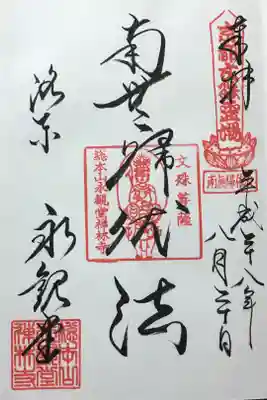 奉拝
平成二十八年
八月二十日
南無帰依法
文殊菩薩
総本山永観堂禅林寺
洛東
永観堂